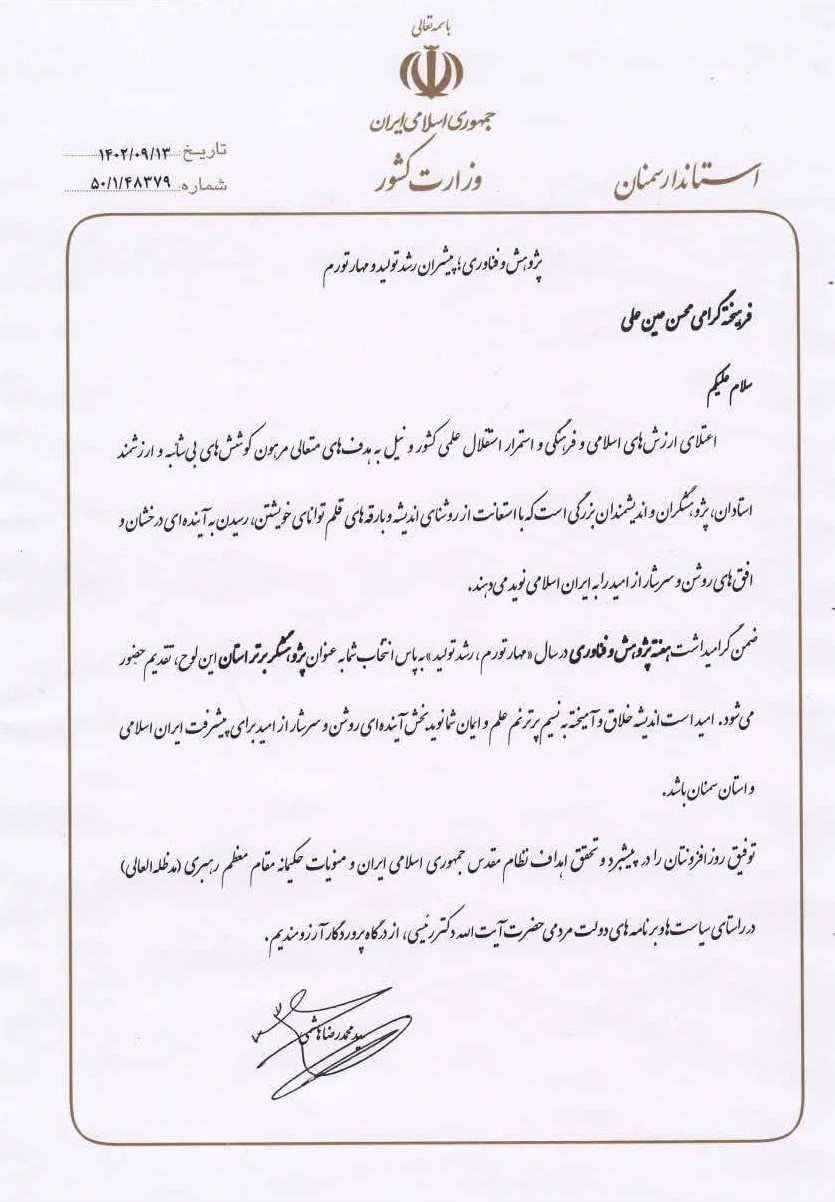 باسمه تعالی
جمهوری اسلامی ایران
وزارت کشور
استاندار سمنان
تاریخ ۱۴۰۲/۰۹/۱۳
شماره ۵۰/۱/۴۸۳۷۹
پژوهش و فناوری؛ پیشران رشد تولید و مهار تورم
فرهیخته گرامی محسن عین علی
سلام علیکم
اعتلای ارزش های اسلامی و فرهنگی و استمرار استقلال علمی کشور و نیل به هدف های متعالی مرهون کوشش های بی شائبه و ارزشمند
استادان، پژوهشگران و اندیشمندان بزرگی است که با استعانت از روشنای اندیشه و بارقه های قلم توانای خویشتن، رسیدن به آینده ای درخشان و
افق های روشن و سرشار از امید را به ایران اسلامی نوید می دهند.
ضمن گرامیداشت هفته پژوهش و فناوری در سال «مهار تورم، رشد تولید» به پاس انتخاب شما به عنوان پژوهشگر برتر استان این لوح، تقدیم حضور
می شود. امید است اندیشه خلاق و آمیخته به نسیم پر ترنم علم و ایمان شما نوید بخش آینده ای روشن و سرشار از امید برای پیشرفت ایران اسلامی
و استان سمنان باشد.
توفیق روز افزونتان را در پیشبرد و تحقق اهداف نظام مقدس جمهوری اسلامی ایران و منویات حکیمانه مقام معظم رهبری (مدظله العالی)
در راستای سیاست ها و برنامه های دولت مردمی حضرت آیت الله دکتر رئیسی، از درگاه پروردگار آرزومندیم.
سید محمدرضا هاشمی